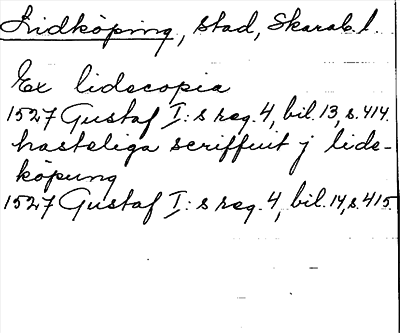 Lidköping, stad, Skarab.l.
Ex lidecopia
1527 Gustaf I:s reg. 4, bil. 13, s. 414.
hasteliga scriffuit j lide-
köpung
1527 Gustaf I:s reg. 4, bil. 14, s. 415.